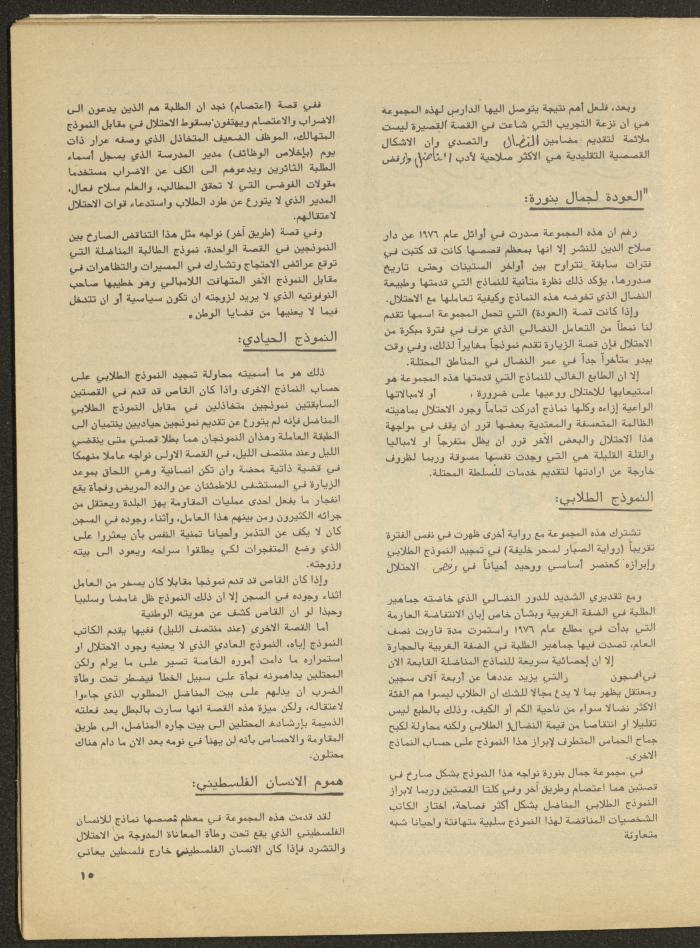 وبعد، فلعل أهم نتيجة يتوصل اليها الدارس لهذه المجموعة
هي ان نزعة التجريب التي شاعت في القصة القصيرة ليست
ملائمة لتقديم مضامين النضال والتصدي وان الاشكال
القصصية التقليدية هي الاكثر صلاحية لأدب النضال والرفض
"العودة لجمال بنورة:
رغم ان هذه المجموعة صدرت في أوائل عام ١٩٧٦ عن دار
صلاح الدين للنشر إلا انها بمعظم قصصها كانت قد كتبت في
فترات سابقة تتراوح بين أواخر الستينات وحتى تاريخ
صدورها، يؤكد ذلك نظرة متأنية للنماذج التي قدمتها وطبيعة
النضال الذي تخوضه هذه النماذج وكيفية تعاملها مع الاحتلال.
وإذا كانت قصة (العودة) التي تحمل المجموعة اسمها تقدم
لنا نمطاً من التعامل النضالي الذي عرف في فترة مبكرة من
الاحتلال فإن قصة الزيارة تقدم نموذجاً مغايراً لذلك، وفي وقت
يبدو متأخراً جداً في عمر النضال في المناطق المحتلة.
إلا ان الطابع الغالب للنماذج التي قدمتها هذه المجموعة هو
استيعابها للاحتلال ووعيها على ضرورة ، أو لامبالاتها
الواعية إزاءه وكلها نماذج أدركت تماماً وجود الاحتلال بماهيته
الظالمة المتعسفة والمعتدية بعضها قرر ان يقف في مواجهة
هذا الاحتلال والبعض الاخر قرر ان يظل متفرجاً او لامباليا
والقلة القليلة هي التي وجدت نفسها مسوقة وربما لظروف
خارجة عن ارادتها لتقديم خدمات للسلطة المحتلة.
النموذج الطلابي:
تشترك هذه المجموعة مع رواية أخرى ظهرت في نفس الفترة
تقريباً (رواية الصبار لسحر خليفة) في تمجيد النموذج الطلابي
وإبرازه كعنصر أساسي ووحيد أحياناً في رفض الاحتلال
ومع تقديري الشديد للدور النضالي الذي خاضته جماهير
الطلبة في الضفة الغربية وبشأن خاص إبان الانتفاضة العارمة
التي بدأت في مطلع عام ١٩٧٦ واستمرت مدة قاربت نصف
العام، تصدت فيها جماهير الطلبة في الضفة الغربية بالحجارة
إلا ان إحصائية سريعة للنماذج المناضلة القابعة الان
في السجون والتي يزيد عددها عن أربعة آلاف سجين
ومعتقل يظهر بما لا يدع مجالا للشك ان الطلاب ليسوا هم الفئة
الاكثر نضالا سواء من ناحية الكم أو الكيف، وذلك بالطبع ليس
تقليلا او انتقاصا من قيمة النضال الطلابي ولكنه محاولة لكبح
جماح الحماس المتطرف لإبراز هذا النموذج على حساب النماذج
الاخرى.
في مجموعة جمال بنورة نواجه هذا النموذج بشكل صارخ في
قصتين هما اعتصام وطريق آخر وفي كلتا القصتين وربما لابراز
النموذج الطلابي المناضل بشكل أكثر فصاحة، اختار الكاتب
الشخصيات المناقضة لهذا النموذج سلبية متهافتة واحيانا شبه
متعاونة
ففي قصة (اعتصام) نجد ان الطلبة هم الذين يدعون الى
الاضراب والاعتصام ويهتفون بسقوط الاحتلال في مقابل النموذج
المتهالك، الموظف الضعيف المتخاذل الذي وصفه عرار ذات
يوم (بإخلاص الوظائف) مدير المدرسة الذي يسجل أسماء
الطلبة الثائرين ويدعوهم الى الكف عن الاضراب مستخدما
مقولات الفوضى التي لا تحقق المطالب، والعلم سلاح فعال،
المدير الذي لا يتورع عن طرد الطلاب واستدعاء قوات الاحتلال
لاعتقالهم.
وفي قصة (طريق آخر) نواجه مثل هذا التناقض الصارخ بين
النموذجين في القصة الواحدة، نموذج الطالبة المناضلة التي
توقع عرائض الاحتجاج وتشارك في المسيرات والتظاهرات في
مقابل النموذج الآخر المتهافت اللامبالي وهو خطيبها صاحب
النوفوتيه الذي لا يريد لزوجته ان تكون سياسية أو ان تتدخل
فيما لا يعنيها من قضايا الوطن.
النموذج الحيادي:
ذلك هو ما أسميته محاولة تمجيد النموذج الطلابي على
حساب النماذج الاخرى واذا كان القاص قد قدم في القصتين
السابقتين نموذجين متخاذلين في مقابل النموذج الطلابي
المناضل فإنه لم يتورع عن تقديم نموذجين حياديين ينتميان الى
الطبقة العاملة وهذان النموذجان هما بطلا قصتي متى ينقضي
الليل وعند منتصف الليل، في القصة الاولى نواجه عاملا منهمكا
في قضية ذاتية محضة وان تكن انسانية وهي اللحاق بموعد
الزيارة في المستشفى للاطمئنان عن والده المريض وفجأة يقع
انفجار ما بفعل احدى عمليات المقاومة يهز البلدة ويعتقل من
جرائه الكثيرون ومن بينهم هذا العامل، وأثناء وجوده في السجن
كان لا يكف عن التذمر وأحيانا تمنية النفس بأن يعثروا على
الذي وضع المتفجرات لكي يطلقوا سراحه ويعود الى بيته
وزوجته.
وإذا كان القاص قد قدم نموذجا مقابلا كان يسخر من العامل
اثناء وجوده في السجن إلا ان ذلك النموذج ظل غامضا وسلبيا
وحبذا لو ان القاص كشف عن هويته الوطنية
أما القصة الاخرى (عند منتصف الليل) ففيها يقدم الكاتب
النموذج إياه، النموذج العادي الذي لا يعنيه وجود الاحتلال او
استمراره ما دامت أموره الخاصة تسير على ما يرام ولكن
المحتلين يداهمونه فجأة على سبيل الخطأ فيضطر تحت وطأة
الضرب ان يدلهم على بيت المناضل المطلوب الذي جاءوا
لاعتقاله، ولكن ميزة هذه القصة انها سارت بالبطل بعد فعلته
الذميمة بإرشاده المحتلين الى بيت جاره المناضل، الى طريق
المقاومة والاحساس بأنه لن يهنأ في نومه بعد الان ما دام هناك
محتلون.
هموم الانسان الفلسطيني:
لقد قدمت هذه المجموعة في معظم قصصها نماذج للانسان
الفلسطيني الذي يقع تحت وطأة المعاناة المدوجة من الاحتلال
والتشرد فإذا كان الانسان الفلسطيني خارج فلسطين يعاني
١٥